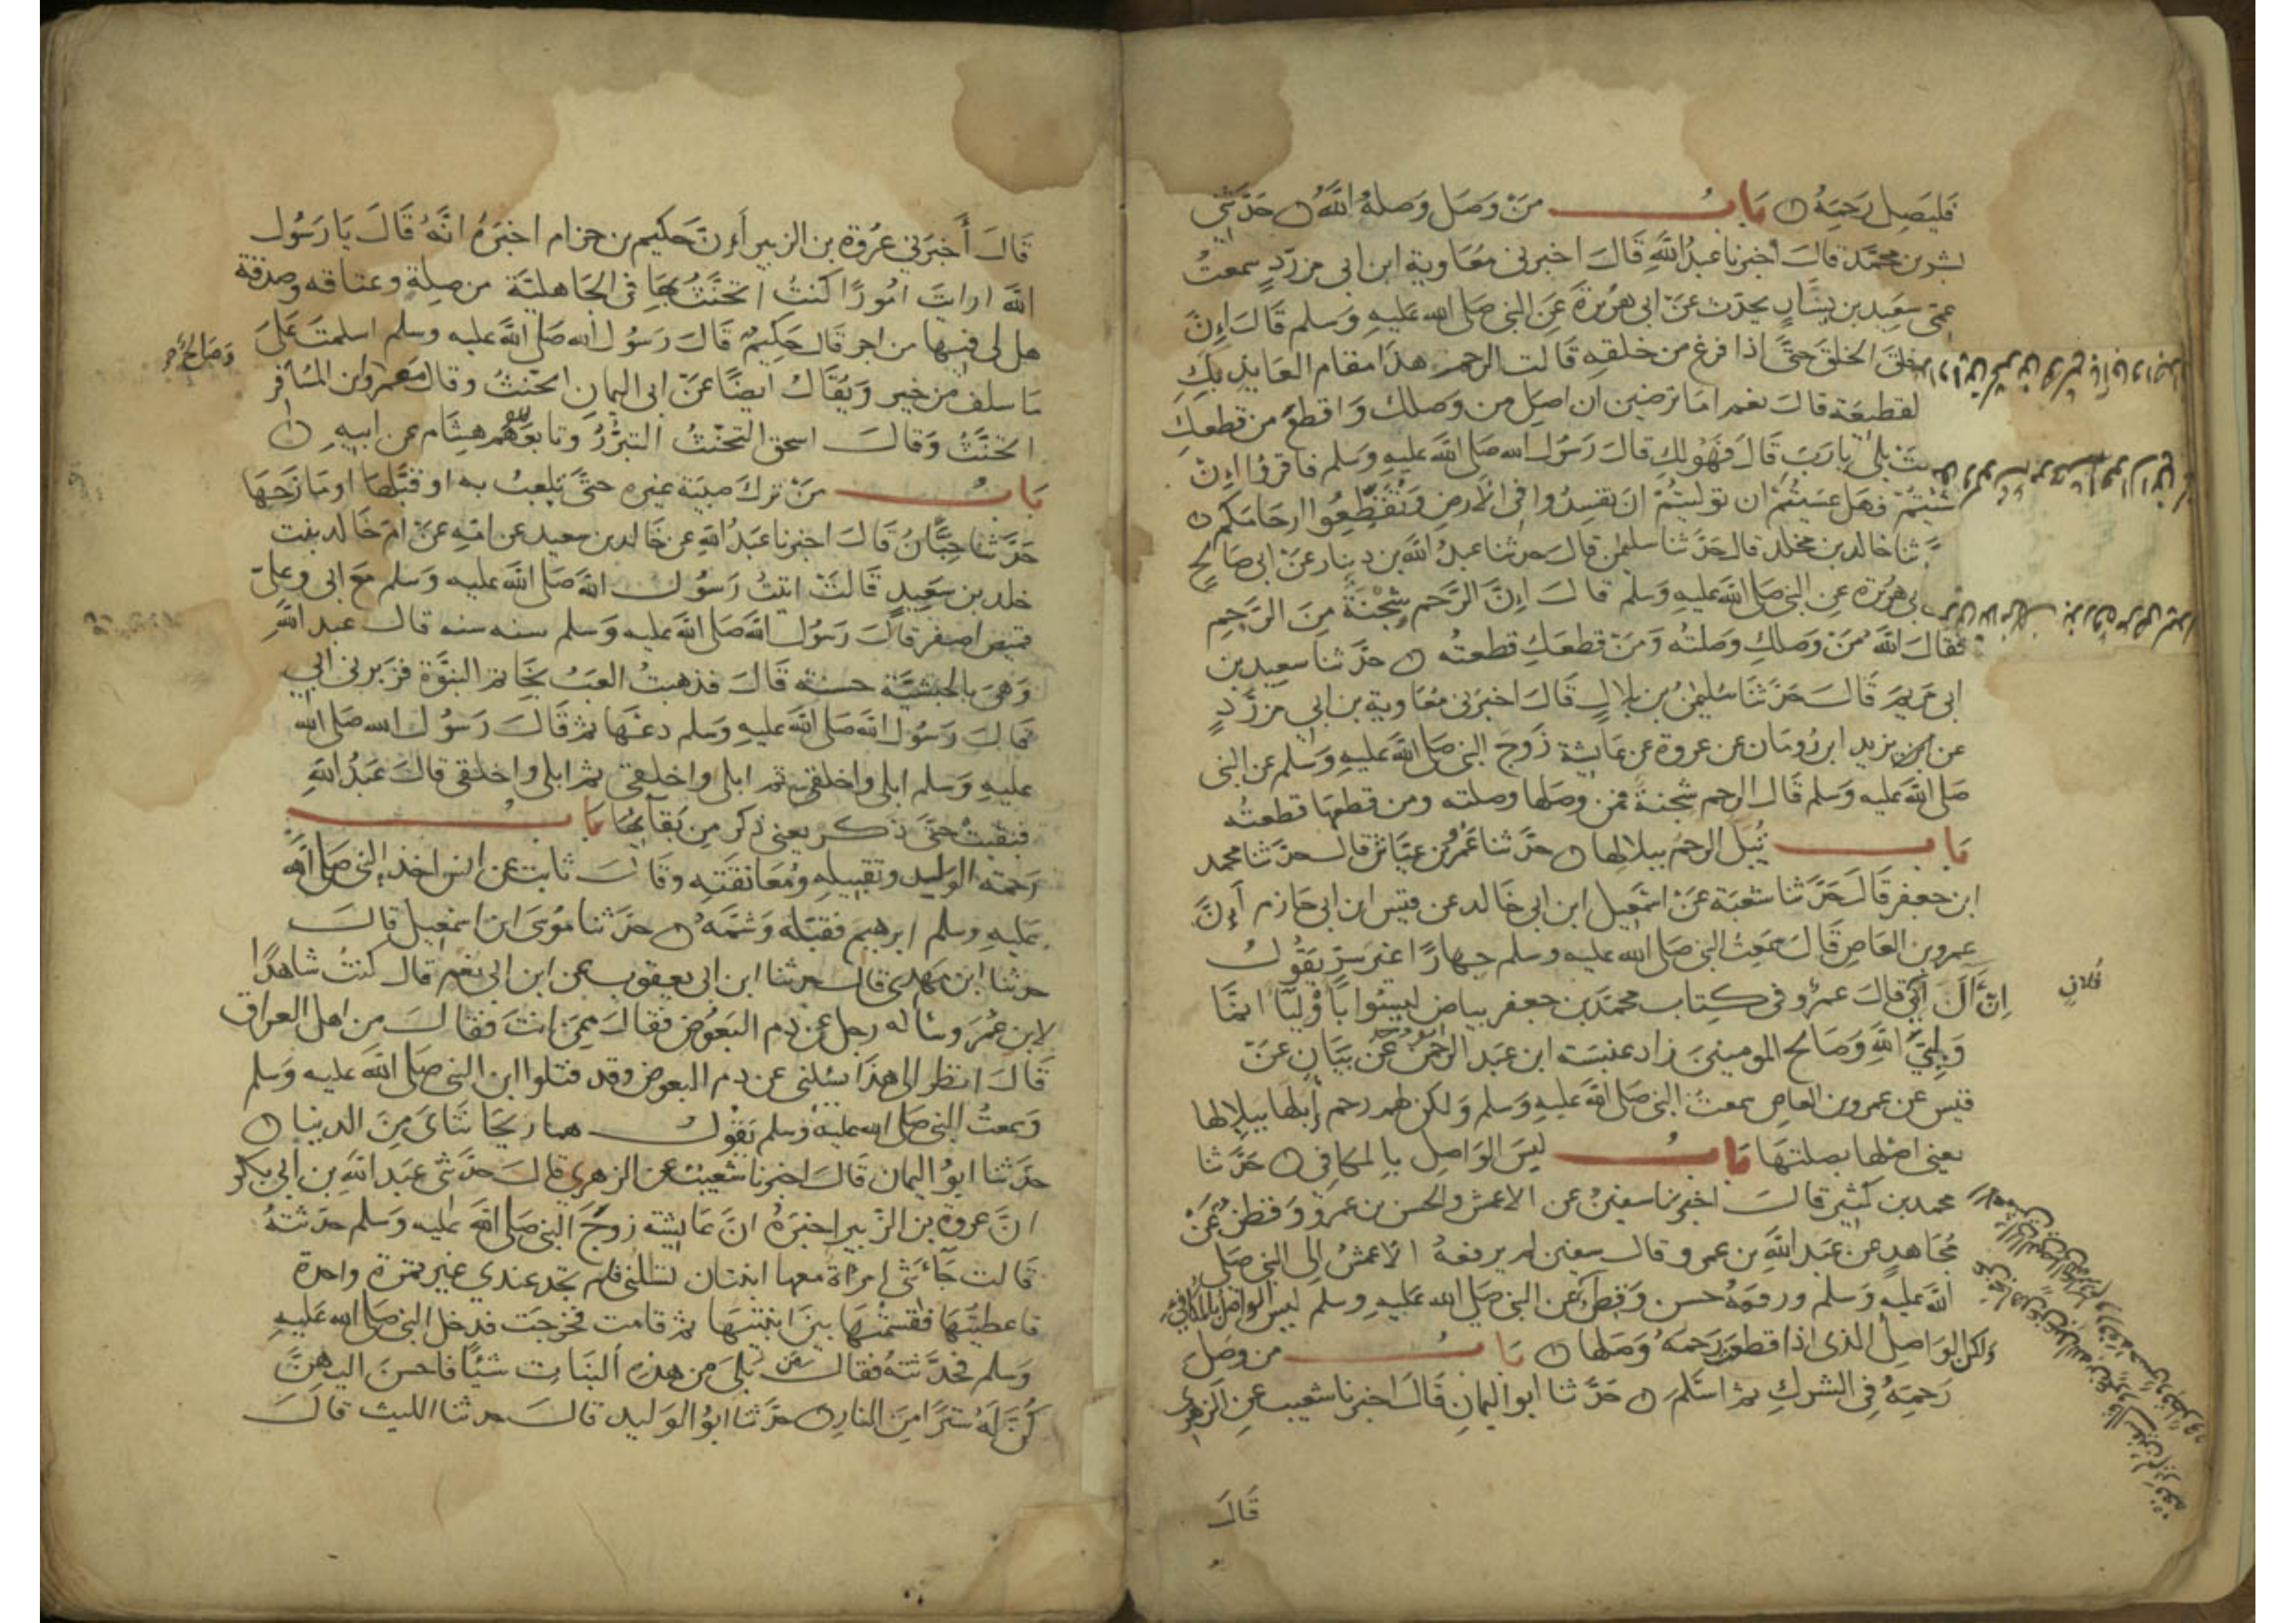 فليصل رحمه ٥ باب من وصل وصله الله ٥ حدثني
بشر بن محمد قال أخبرنا عبد الله قال اخبرني معاوية ابن ابي مزرد سمعت
عمي سعيد بن يسار يحدث عن ابي هريرة عن النبي صلى الله عليه وسلم قال إن
خلق الخلق حتى اذا فرغ من خلقه قالت الرحم هذا مقام العايذ بك
لقطيعة قال نعم اما ترضين ان اصل من وصلك واقطع من قطعك
بلى يا رب قال فهو لك قال رسول الله صلى الله عليه وسلم فاقرؤا إن
شئتم فهل عسيتم ان توليتم ان تفسدوا في الأرض وتقطعوا ارحامكم ٥
ثنا خالد بن مخلد قال حدثنا سليمن قال حدثنا عبد الله بن دينار عن ابي صالح
بي هريرة عن النبي صلى الله عليه وسلم قال إن الرحم شجنة من الرحمن
فقال الله من وصلك وصلته ومن قطعك قطعته ٥ حدثنا سعيد بن
ابي مريم قال حدثنا سليمن بن بلال قال اخبرني معاوية بن ابي مزرد
عن يزيد ابن رومان عن عروة عن عايشة زوج النبي صلى الله عليه وسلم عن النبي
صلى الله عليه وسلم قال الرحم شجنة فمن وصلها وصلته ومن قطعها قطعته
باب تبل الرحم ببلالها ٥ حدثنا عمرو بن عباس قال حدثنا محمد
ابن جعفر قال حدثنا شعبة عن اسمعيل ابن ابي خالد عن قيس ابن ابي حازم أن
عمرو بن العاص قال سمعت النبي صلى الله عليه وسلم جهارا غير سر يقول
إن آل أبي قال عمرو في كتاب محمد بن جعفر بياض ليسوا بأوليآ انما
فلان
وليي الله وصالح المومنين زاد عنبسة ابن عبد الواحد عن بيان عن
قيس عن عمرو بن العاص سمعت النبي صلى الله عليه وسلم ولكن لهم رحم أبلها ببلالها
يعني اصلها بصلتها باب ليس الواصل بالمكافي ٥ حدثنا
محمد بن كثير قال اخبرنا سفين عن الاعمش والحسن بن عمرو وفطر عن
مجاهد عن عبد الله بن عمرو قال سفين لم يرفعه الاعمش إلى النبي صلى
الله عليه وسلم ورفعه حسن وفطر عن النبي صلى الله عليه وسلم ليس الواصل بالمكافي
ولكن الواصل الذي اذا قطعت رحمه وصلها ٥ باب من وصل
رحمه في الشرك ثم اسلم ٥ حدثنا ابو اليمان قال اخبرنا شعيب عن الزهري
قال
قال أخبرني عروة بن الزبير أن حكيم بن حزام اخبره انه قال يا رسول
الله ارايت امورا كنت اتحنث بها في الجاهلية من صلة وعتاقه وصدقة
هل لي فيها من اجر قال حكيم قال رسول الله صلى الله عليه وسلم اسلمت على
ما سلف من خير ويقال ايضا عن ابي اليمان اتحنث وقال معمر وابن المسافر
وصالح
اتحنث وقال اسحق التحنث التبرر وتابعهم هشام عن ابيه ٥
باب من ترك صبية غيره حتى تلعب به او قبلها او مازحها
حدثنا حبان قال اخبرنا عبد الله عن خالد بن سعيد عن ابيه عن ام خالد بنت
خلد بن سعيد قالت اتيت رسول الله صلى الله عليه وسلم مع ابي وعلي
قميص اصفر قال رسول الله صلى الله عليه وسلم سنه سنه قال عبد الله
وهي بالحبشية حسنة قال فذهبت العب بخاتم النبوة فزبرني ابي
قال رسول الله صلى الله عليه وسلم دعها ثم قال رسول الله صلى الله
عليه وسلم ابلي واخلقي ثم ابلي واخلقي ثم ابلي واخلقي قال عبد الله
فبقيت حتى ذكر يعني ذكر من بقآيها باب
رحمة الوليد وتقبيله ومعانقته وقال ثابت عن انس اخذ النبي صلى الله
عليه وسلم ابرهيم فقبله وشمه ٥ حدثنا موسى ابن اسمعيل قال
حدثنا ابن مهدي قال حدثنا ابن ابي يعقوب عن ابن ابي نعم قال كنت شاهدا
لابن عمر وساله رجل عن دم البعوض فقال ممن انت فقال من اهل العراق
قال انظر الى هذا يسلني عن دم البعوض وقد قتلوا ابن النبي صلى الله عليه وسلم
وسمعت النبي صلى الله عليه وسلم يقول هما ريحانتاى من الدنيا ٥
حدثنا ابو اليمان قال اخبرنا شعيب عن الزهري قال حدثني عبد الله بن ابي بكر
ان عروة بن الزبير اخبره ان عايشة زوج النبي صلى الله عليه وسلم حدثته
قالت جآءتني امراة معها ابنتان تسلني فلم تجد عندي غير تمرة واحدة
فاعطيتها فقسمتها بين ابنتيها ثم قامت فخرجت فدخل النبي صلى الله عليه
وسلم فحدثته فقال من بلى من هذه البنات شيئا فاحسن اليهن
كن له سترا من النار ٥ حدثنا ابو الوليد قال حدثنا الليث قال